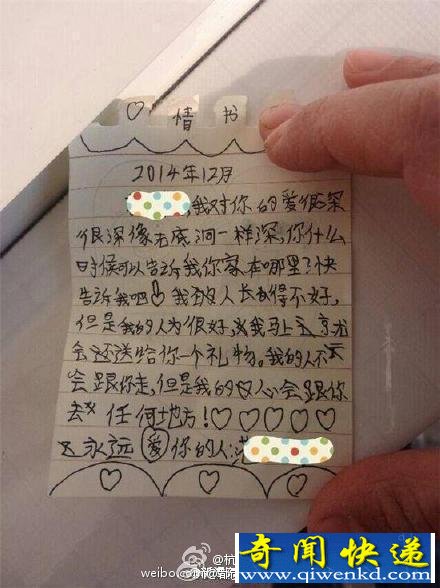 ♡情书
2014年12月
,我对你的爱很深
很深像无底洞一样深,你什么
时候可以告诉我你家在哪里?快
告诉我吧!我本人长得不好,
但是我的人为很好,我马上
会还送给你一个礼物。我的人不
会跟你走,但是我的心会跟你
去任何地方!♡♡♡♡♡
永远爱你的人:
奇闻快递
www.qiwenkd.com
weibo.com